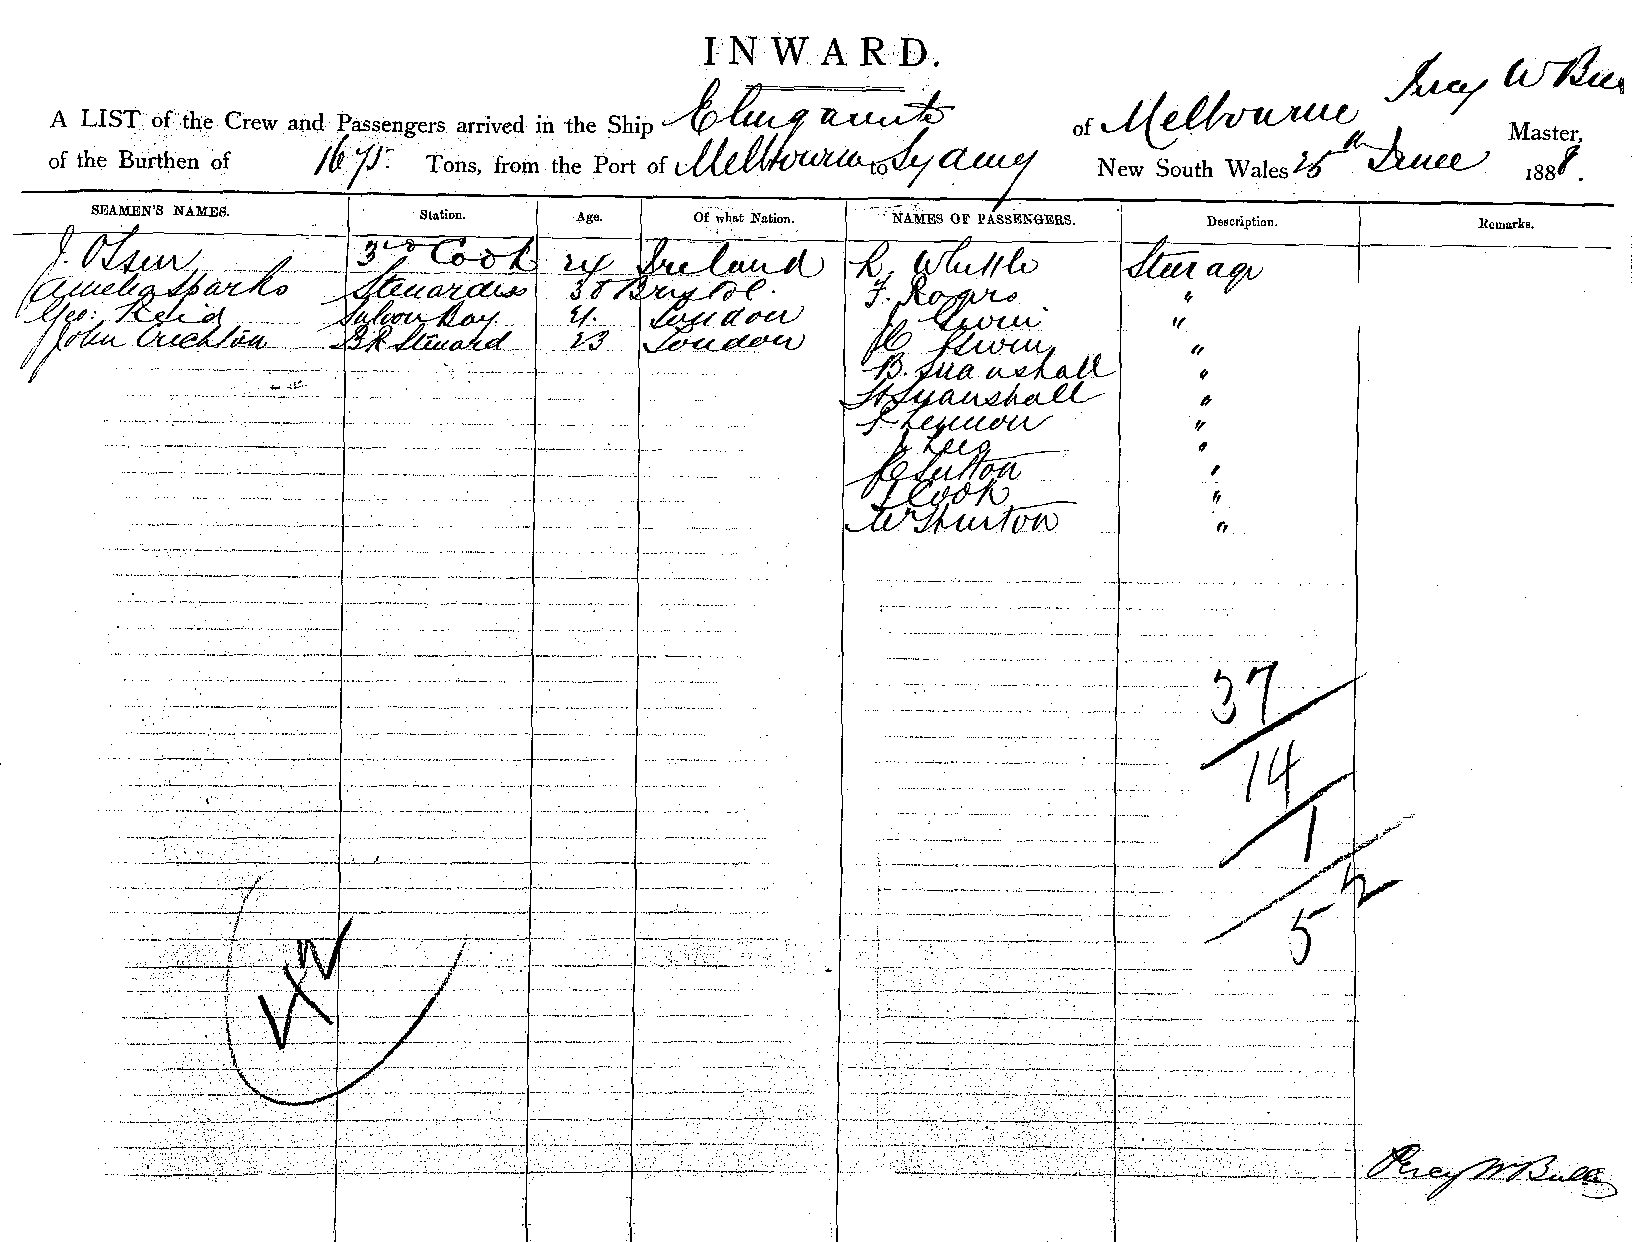 INWARD.
A LIST of the Crew and Passengers arrived in the Ship Elingamite of Melbourne Percy W Bull Master,
of the Burthen of 1675 Tons, from the Port of Melbourne to Sydney New South Wales 25th June 1888.
SEAMEN'S NAMES. Station. Age. Of what Nation. NAMES OF PASSENGERS. Description. Remarks.
J. Olsen 3rd Cook 24 Ireland Whittle Steerage
Amelia Sparks Stewardess 38 Bristol. F. Rogers "
Geo: Reid Saloon Boy 21. London Irwin "
John Crichton BR Steward 23 London Irwin "
B. Marshall "
Marshall "
Lennon "
"
Sutton "
Cook "
W Thurton "
37
14
1
2
5
Percy W Bull